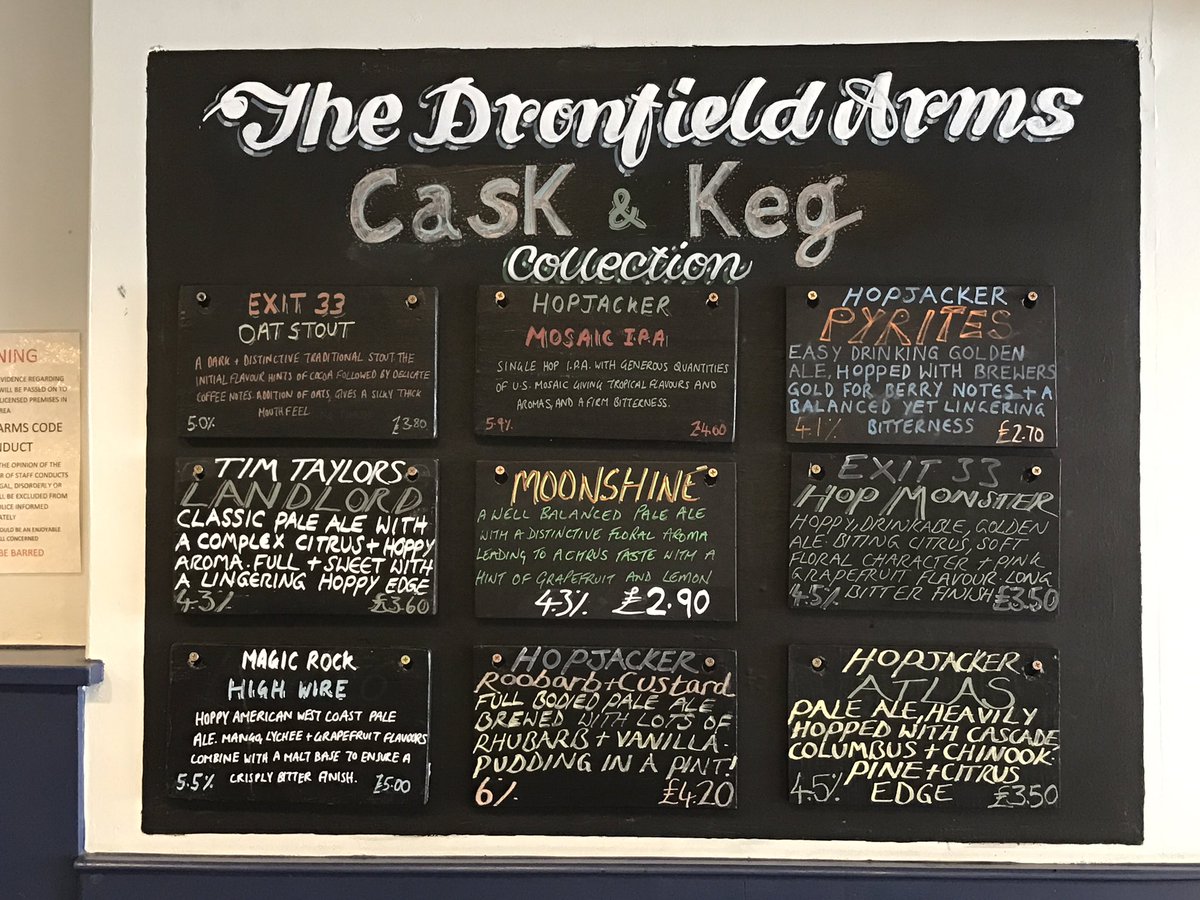 The Dronfield Arms
Cask & Keg
Collection
EXIT 33
OAT STOUT
A DARK + DISTINCTIVE TRADITIONAL STOUT THE
INITIAL FLAVOUR HINTS OF COCOA FOLLOWED BY DELICATE
COFFEE NOTES. ADDITION OF OATS, GIVES A SILKY THICK
MOUTH FEEL
5.0% £3.80
HOPJACKER
MOSAIC I.P.A
SINGLE HOP I.P.A. WITH GENEROUS QUANTITIES
OF U.S. MOSAIC GIVING TROPICAL FLAVOURS AND
AROMAS, AND A FIRM BITTERNESS.
5.9% £4.00
HOPJACKER
PYRITES
EASY DRINKING GOLDEN
ALE, HOPPED WITH BREWERS
GOLD FOR BERRY NOTES + A
BALANCED YET LINGERING
4.1% BITTERNESS £2.70
TIM TAYLORS
LANDLORD
CLASSIC PALE ALE WITH
A COMPLEX CITRUS + HOPPY
AROMA. FULL + SWEET WITH
A LINGERING HOPPY EDGE
4.3% £3.60
MOONSHINE
A WELL BALANCED PALE ALE
WITH A DISTINCTIVE FLORAL AROMA
LEADING TO A CITRUS TASTE WITH A
HINT OF GRAPEFRUIT AND LEMON
4.3% £2.90
EXIT 33
HOP MONSTER
HOPPY, DRINKABLE, GOLDEN
ALE. BITING CITRUS, SOFT
FLORAL CHARACTER + PINK
GRAPEFRUIT FLAVOUR. LONG
4.5% BITTER FINISH £3.50
MAGIC ROCK
HIGH WIRE
HOPPY AMERICAN WEST COAST PALE
ALE. MANGO, LYCHEE + GRAPEFRUIT FLAVOURS
COMBINE WITH A MALT BASE TO ENSURE A
CRISPLY BITTER FINISH.
5.5% £5.00
HOPJACKER
ROOBARB + CUSTARD
FULL BODIED PALE ALE
BREWED WITH LOTS OF
RHUBARB + VANILLA.
PUDDING IN A PINT!
6% £4.20
HOPJACKER
ATLAS
PALE ALE, HEAVILY
HOPPED WITH CASCADE,
COLUMBUS + CHINOOK.
PINE + CITRUS
4.5% EDGE £3.50
NING
EVIDENCE REGARDING
WILL BE PASSED ON TO
LICENSED PREMISES IN
REA
ARMS CODE
NDUCT
THE OPINION OF THE
R OF STAFF CONDUCTS
GAL, DISORDERLY OR
LL BE EXCLUDED FROM
OLICE INFORMED
ATELY
OULD BE AN ENJOYABLE
LL CONCERNED
BE BARRED